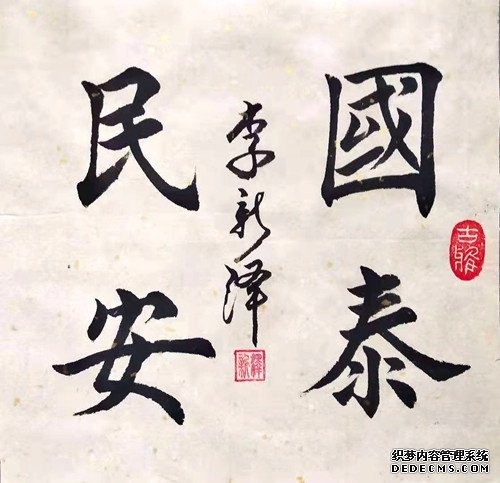 國泰
民安
李新泽
吉雅
新泽
织梦内容管理系统
DEDECMS.COM